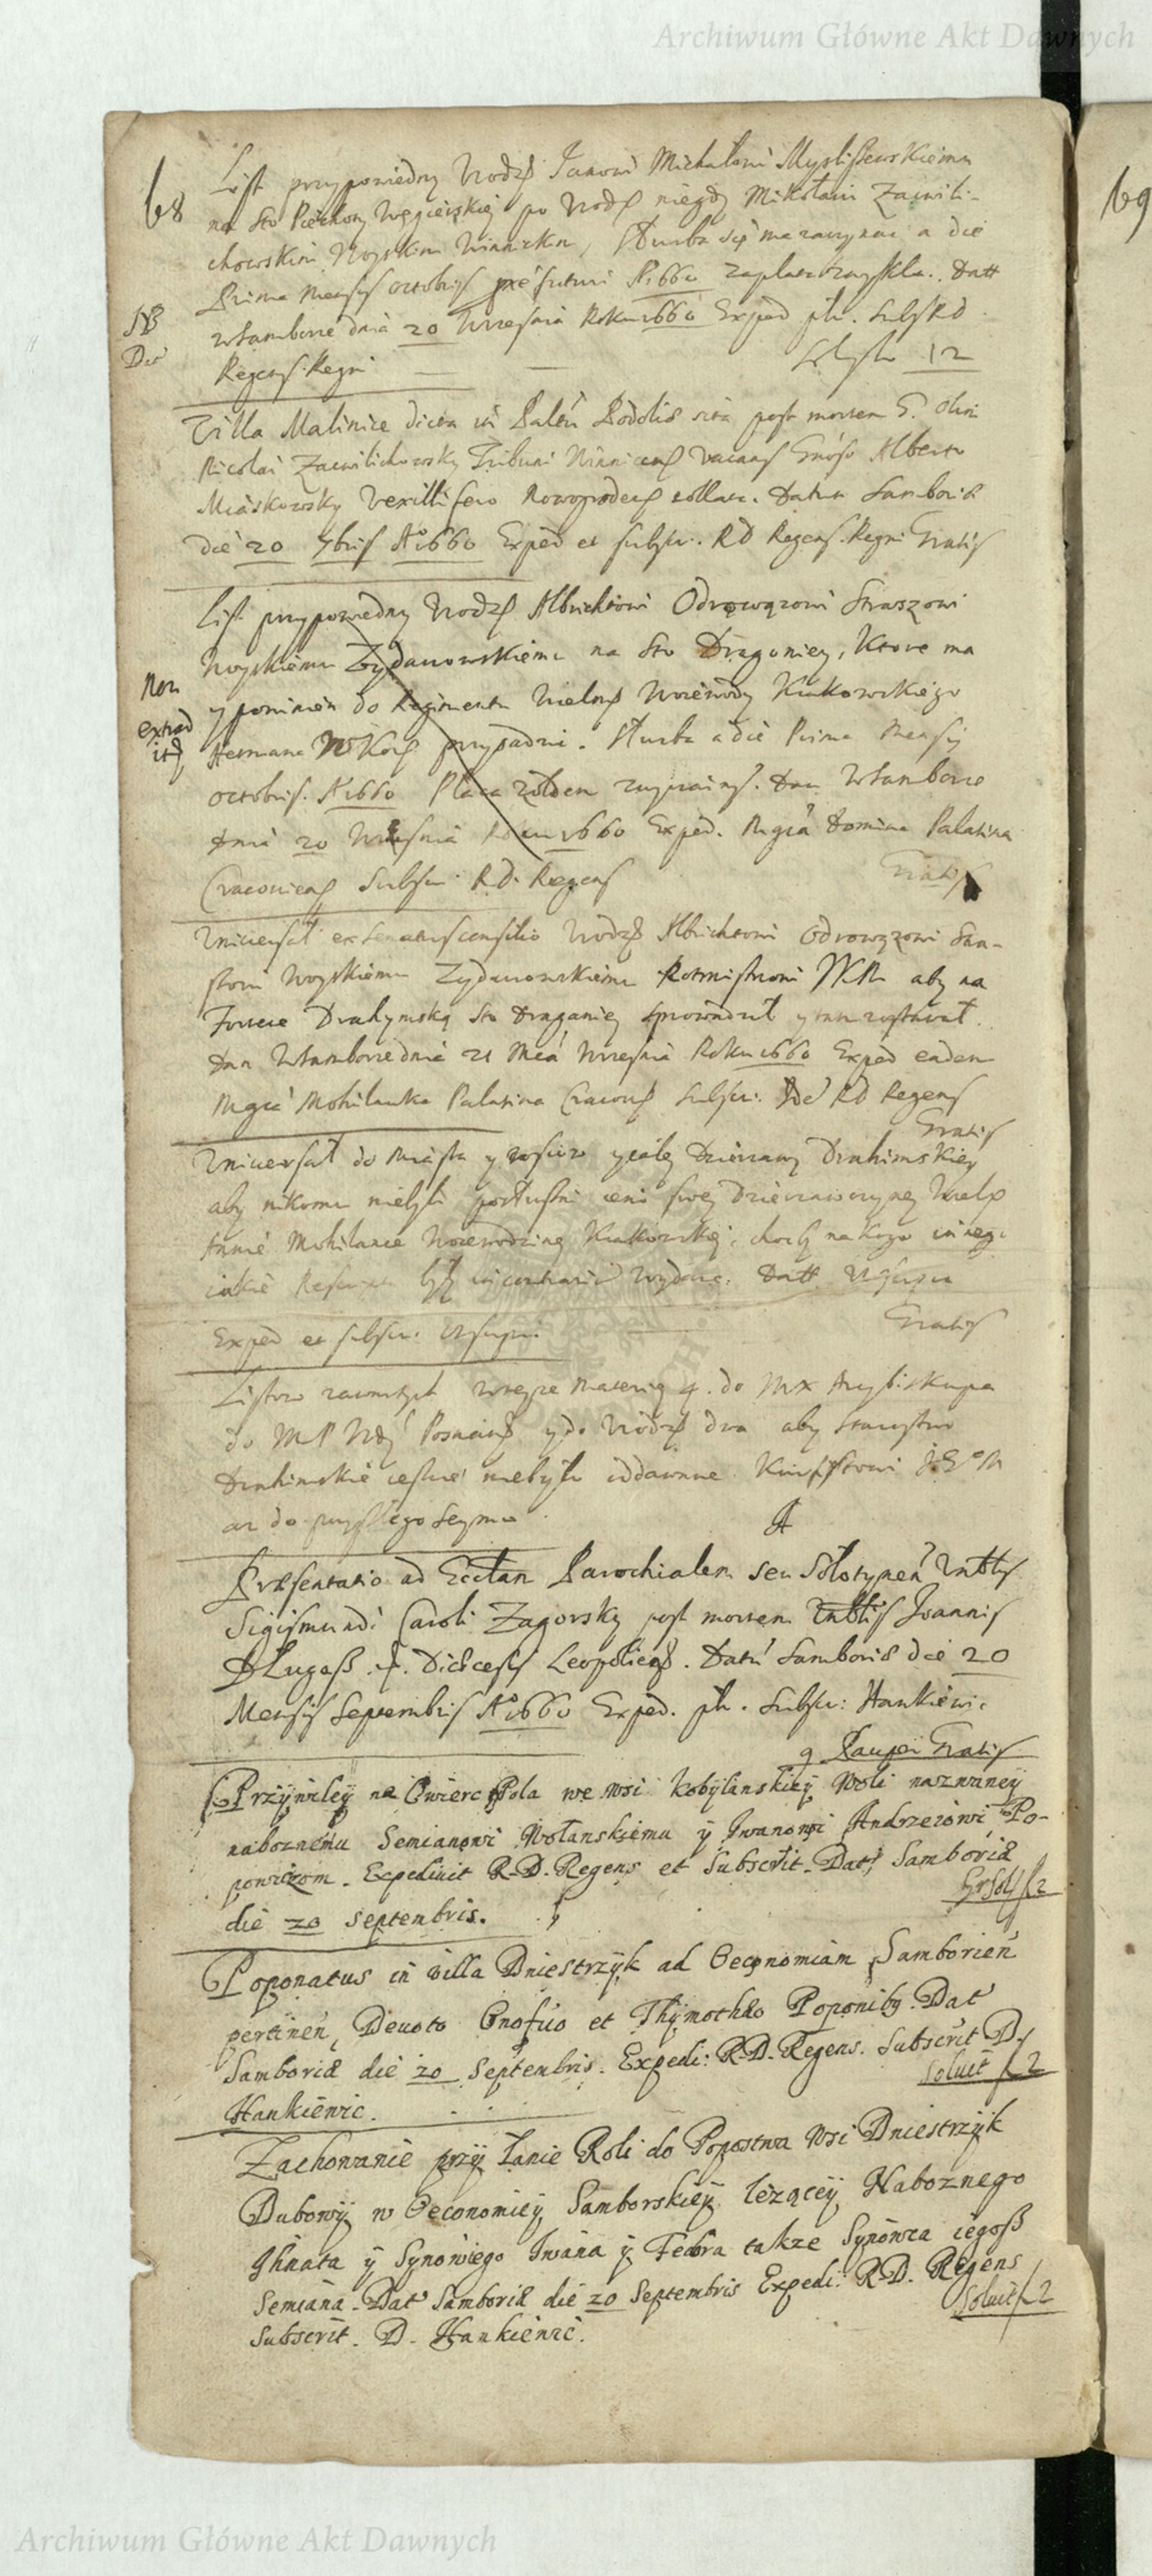 Archiwum Główne Akt Dawnych
68
69
List przypowiedny Urodz Janowi Michałowi Mysliszewskiemu
na Sto Piechoty Węgierskiey po Urodz niegdy Mikołaiu Zacwili-
chowskim Woyskim Winnickim, służba się ma zaczynac a die
Prima Mensis octobris futuri A 1660 zaplata zwykla. Datt
w Samborze dnia 20 Wrzesnia Roku 1660 Exped ph. Subs RD
NB
Regens Regni
12
Villa Malinice dicta in Paltu Podoliæ sita post mortem G. olim
Nicolai Zacwilichowsky Tribuni Winnicens vacans Gnoso Alberto
Miaskowsky Vexillifero Nowogrodens collata. Datum Samboriæ
die 20 7bris A° 1660 Exped et subscr. RD Regens Regni Gratis
List przypowiedny Urodz Albrichtowi Odrowązowi Straszowi
Woyskiemu Zydaczowskiemu na Sto Dragoniey, Ktore ma
Non
extrad
itŋ
y powinien do Regimentu Wielm Woiewody Krakowskiego
Hetmana W Kor przypadni. Służba a die Prima Mensis
octobris. A 1660 Placa żołdem zwyczaing. Dan W Samborze
Dnia 20 Wrzesnia Roku 1660 Exped. Mgca Domina Palatina
Cracoviens Subscr. RD. Regens Gratis
Uniwersał ex Senatusconsilio Urodz Albrichtowi Odrowązowi Stra-
szowi Woyskiemu Zydaczowskiemu Rotmistrzowi JKM aby na
Fortece Drahymską Sto Draganiey sprowadził y tam zostawał.
Dan W Samborze dnia 21 Mca Wrzesnia Roku 1660 Exped eadem
Mgca Mohilanka Palatina Cracovs Subscr: RD Regens
Gratis
Uniwersał do Miasta y całey Dzierzawy Drahimskiey
aby nikomu niebyli posłuszni ieno swey Dzierzawczyney Wielm
Annie Mohilance Woiewodziney Krakowskiey, chocby na kogo innego
iakie były in contrariu wydane. Datt Ut supra
Exped et subscr. Ut supra. Gratis
Listow zawartych w teyze materiey 4. do MX Arcybiskupa
do MP Posnans y do Urodz dwa aby Starostwo
Drahimskie ieszcze niebyło oddawane Kurfistowi
az do przyszłego Seymu
Præsentatio ad Ecclan Parochialem seu Sołotypen
Sigismundi Caroli Zagorsky post mortem Joannis
Długosz. Diæcesis Leopoliens. Datū Samboriæ die 20
Mensis Septembris A° 1660 Exped. ph. Subscr: Hankiewic
Pauper Gratis
Przÿwileÿ na Cwierc Pola we wsi Kobÿlanskieÿ Woli nazwaneÿ
naboznemu Semianowi Wolanskiemu ÿ Iwanowi Andrzeiowi Po-
powiczom. Expediuit R. D. Regens et Subscrit. Dat Samboriæ
die 20 Septembris. 2
Poponatus in villa Dniestrzÿk ad Oeconomiam Samborien
pertinen, Deuoto Onofrio et Thÿmothæo Poponiby. Dat
Samboriæ die 20 Septembris. Expedi: R. D. Regens. Subscrit D.
Hankiewic. Soluit f 2
Zachowanie przÿ Łanie Roli do Popostwa wsi Dniestrzÿk
Dubowÿ w Oeconomieÿ Samborskieÿ lezączeÿ Naboznego
Ihnata ÿ Synowiego Iwana ÿ Fedora takze Synowca iegosz
Semiana. Dat Samboriæ die 20 Septembris Expedi: R. D. Regens
Subscrit. D. Hankiewic. Soluit f 2
Archiwum Główne Akt Dawnych